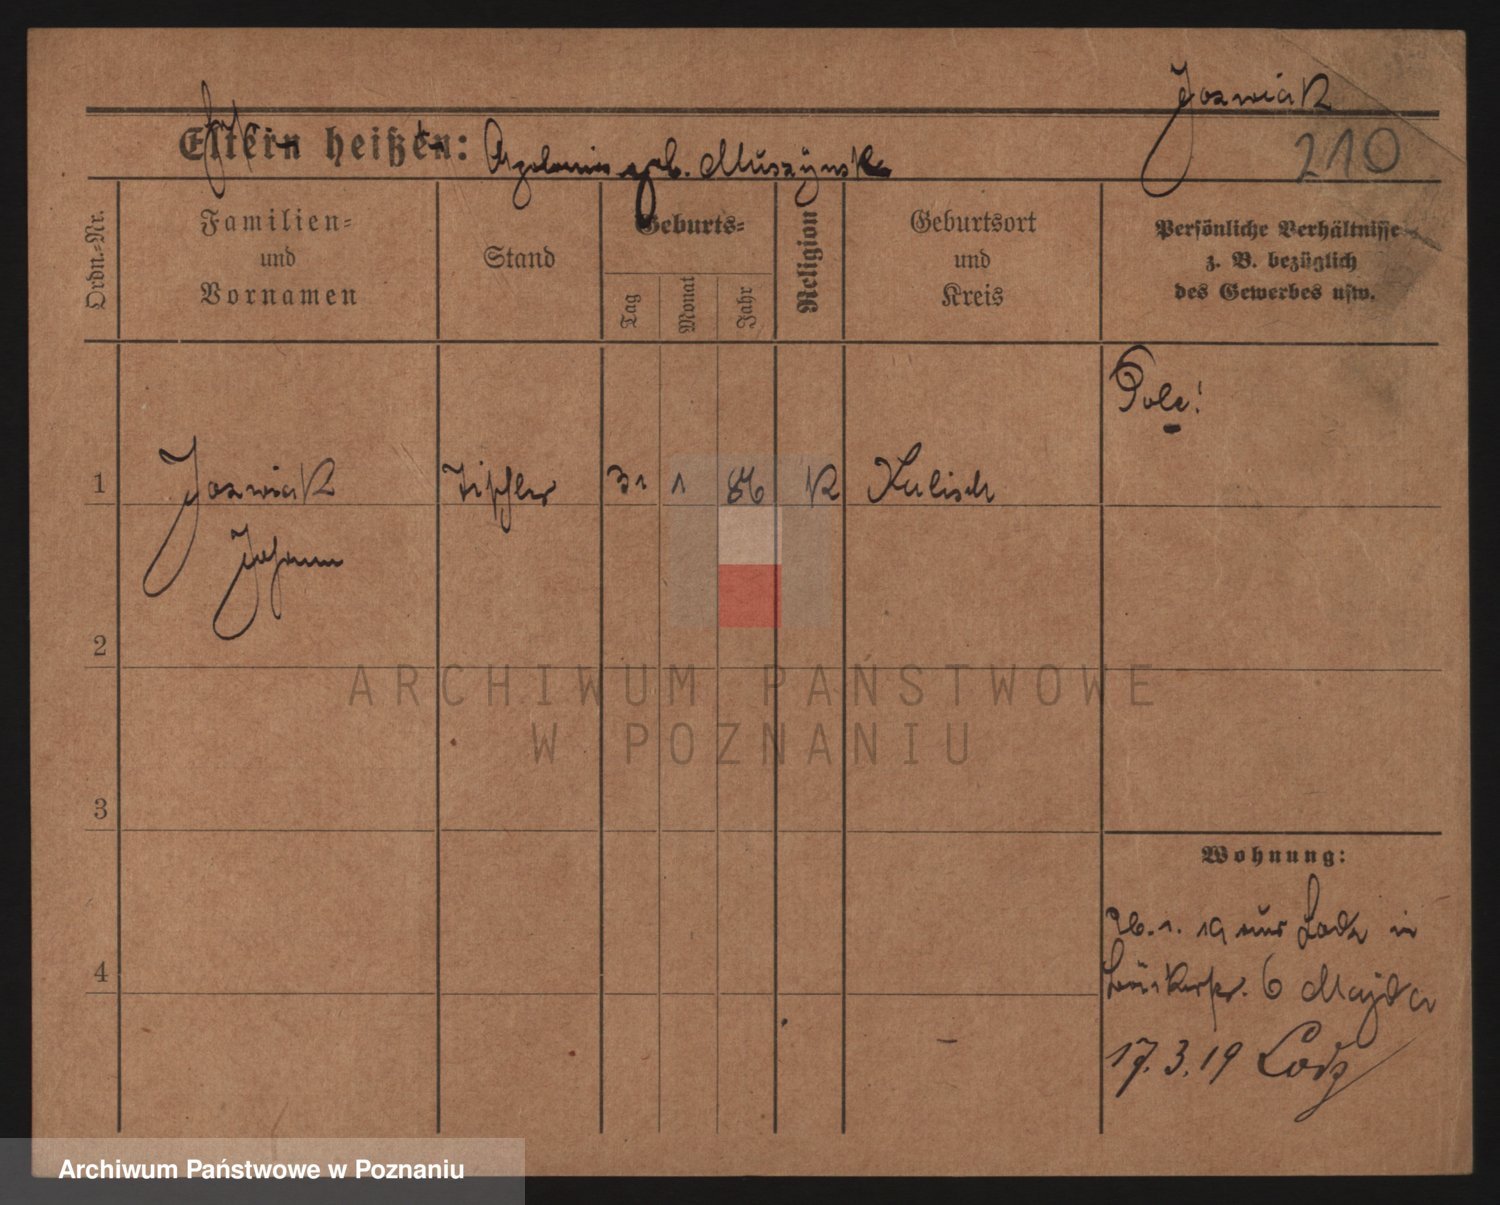 Jozwiak
Eltern heißen: geb. Muszÿnska
210
Ordn.-Nr.
Familien-
und
Vornamen
Stand
Geburts-
Tag
Monat
Jahr
Religion
Geburtsort
und
Kreis
Persönliche Verhältnisse
z. B. bezüglich
des Gewerbes usw.
Pole!
1 Jozwiak Tischler 31 1 86 K Kalisch
Johann
2
3
4
Wohnung:
26. 1. 19 aus Lodz in
6 Majda
17. 3. 19 Lodz
ARCHIWUM PAŃSTWOWE
W POZNANIU
Archiwum Państwowe w Poznaniu